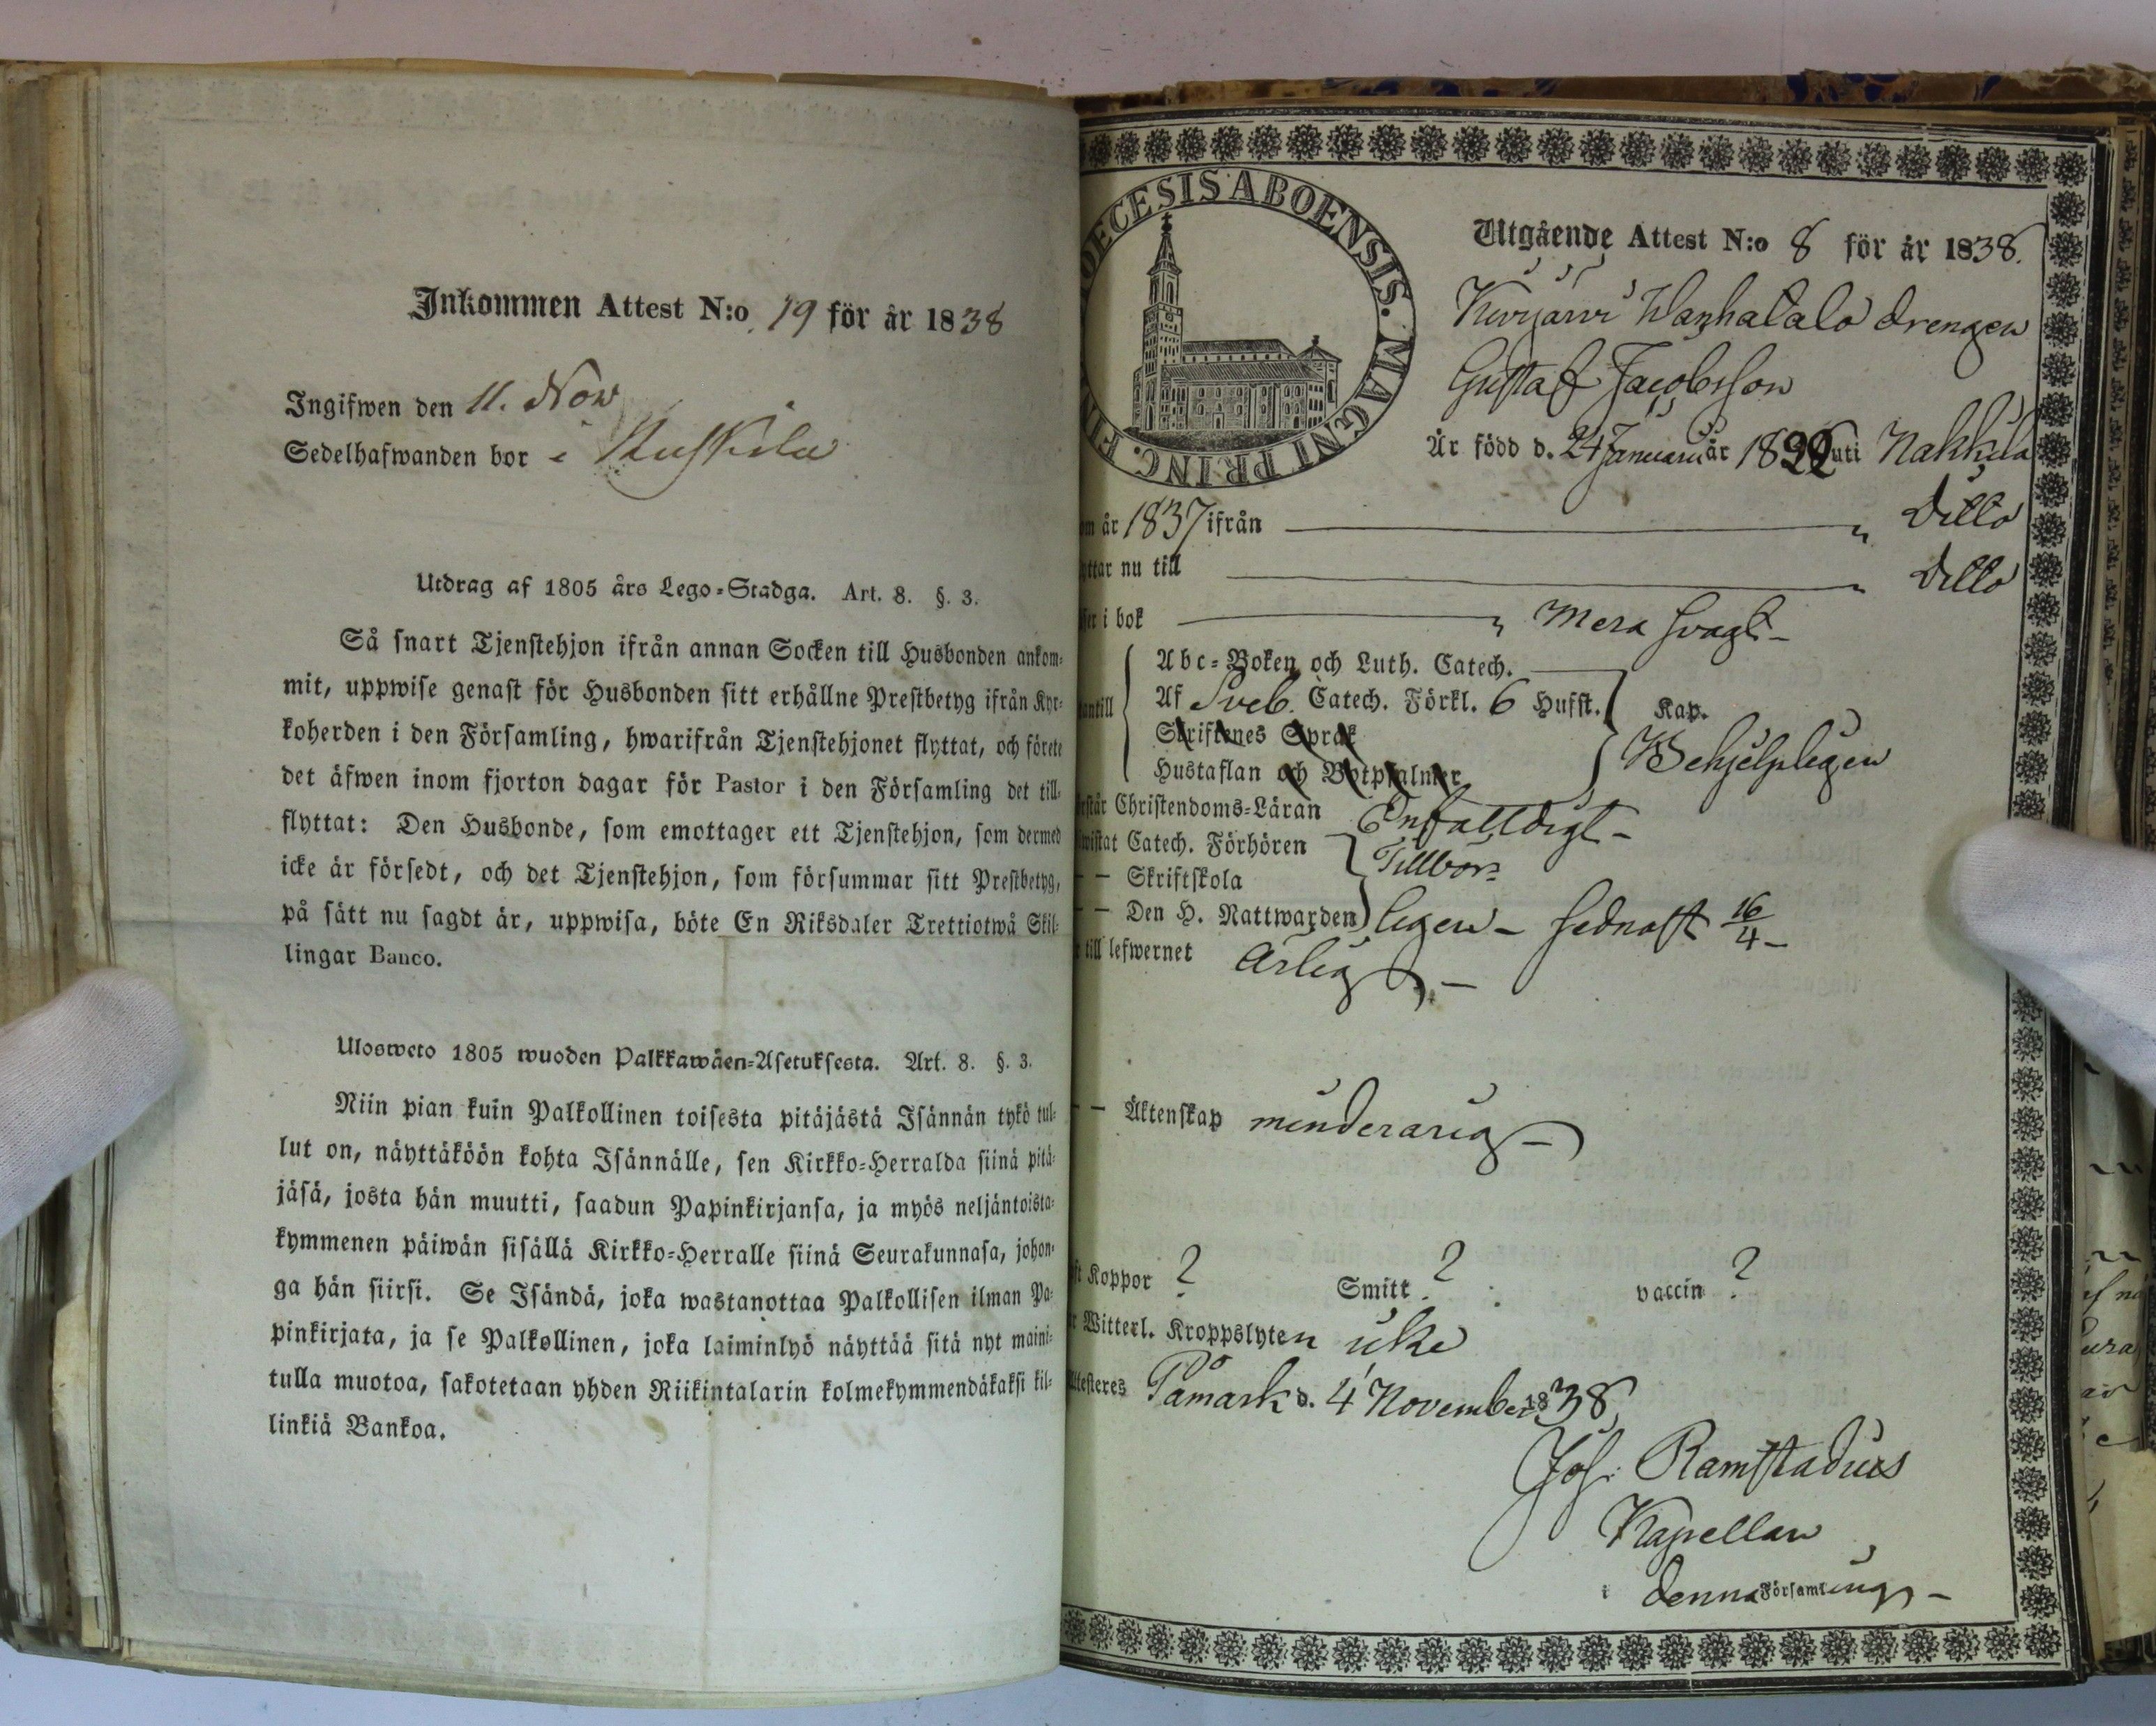 Inkommen Attest N:o 19 för år 1838
Ingifwen den 11. Nov
Sedelhafwanden bor i Ruskila
Utdrag af 1805 års Lego-Stadga. Art. 8. §. 3.
Så snart Tjenstehjon ifrån annan Socken till Husbonden ankom-
mit, uppwise genast för Husbonden sitt erhållne Prestbetyg ifrån Kyr-
koherden i den Församling, hwarifrån Tjenstehjonet flyttat, och förete
det äfwen inom fjorton dagar för Pastor i den Församling det till-
flyttat: Den Husbonde, som emottager ett Tjenstehjon, som dermed
icke är försedt, och det Tjenstehjon, som försummar sitt Prestbetyg,
på sätt nu sagdt är, uppwisa, böte En Riksdaler Trettiotwå Skil-
lingar Banco.
Ulosweto 1805 wuoden Palkkawäen-Asetuksesta. Art. 8. §. 3.
Niin pian kuin Palkollinen toisesta pitäjästä Isännän tykö tul-
lut on, näyttäköön kohta Isännälle, sen Kirkko-Herralda siinä pitä-
jäsä, josta hän muutti, saadun Papinkirjansa, ja myös neljäntoista-
kymmenen päiwän sisällä Kirkko-Herralle siinä Seurakunnasa, johon-
ga hän siirsi. Se Isändä, joka wastanottaa Palkollisen ilman Pa-
pinkirjata, ja se Palkollinen, joka laiminlyö näyttää sitä nyt maini-
tulla muotoa, sakotetaan yhden Riikintalarin kolmekymmendäkaksi kil-
linkiä Bankoa.
OECESIS ABOENSIS. MAGNI PRINC. FIN
Utgående Attest N:o 8 för år 1838.
Wanhatalo drengen
Gustaf Jacobsson
Är född d. 24 Januari år 1822 uti Nakkila
om år 1837 ifrån Ditto
yttar nu till Ditto
ser i bok Mera svagt
Abc-Boken och Luth. Catech.
antill Af Sveb. Catech. Förkl. 6 Hufst. Kap.
Skriftenes Språk
Hustaflan och Botpsalmer Behjelpligen
rstår Christendoms-Läran Enfalldigt
wistat Catech. Förhören Tillbör-
— Skriftskola
— Den H. Nattwarden ligen sednast 16/4
till lefwernet Ärlig
— Äktenskap minderårig
st Koppor ? Smitt ? vaccin ?
r Witterl. Kroppslyten icke
Attesteres Påmark d. 4 November 1838
Joh: Ramstadius
Kapellan
i denna Församling